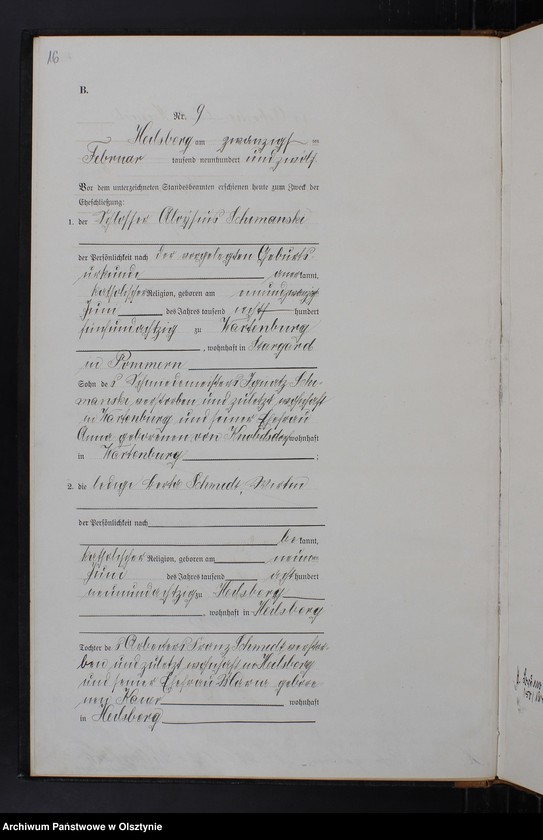 16
B.
Nr. 9
Heilsberg am zwanzigsten
Februar tausend neunhundert und zwölf
Vor dem unterzeichneten Standesbeamten erschienen heute zum Zweck der
Eheschließung:
1. der Schlosser Aloysius Schemanski
der Persönlichkeit nach der vorgelegten Geburts-
urkunde anerkannt,
katholischer Religion, geboren am einundzwanzigsten
Juni des Jahres tausend acht hundert
fünfundachtzig zu Wartenburg
, wohnhaft in Stargard
in Pommern
Sohn des Schmiedemeisters Ignatz Sche-
manski verstorben und zuletzt wohnhaft
in Wartenburg und seiner Ehefrau
Anna geborenen von Knobelsdorf wohnhaft
in Wartenburg ;
2. die ledige Schmidt,
der Persönlichkeit nach
bekannt,
katholischer Religion, geboren am neunten
Juni des Jahres tausend acht hundert
neunundachtzig zu Heilsberg
, wohnhaft in Heilsberg
Tochter des Arbeiters Franz Schmidt verstor-
ben und zuletzt wohnhaft in Heilsberg
und seiner Ehefrau Maria gebore-
nen wohnhaft
in Heilsberg
Archiwum Państwowe w Olsztynie